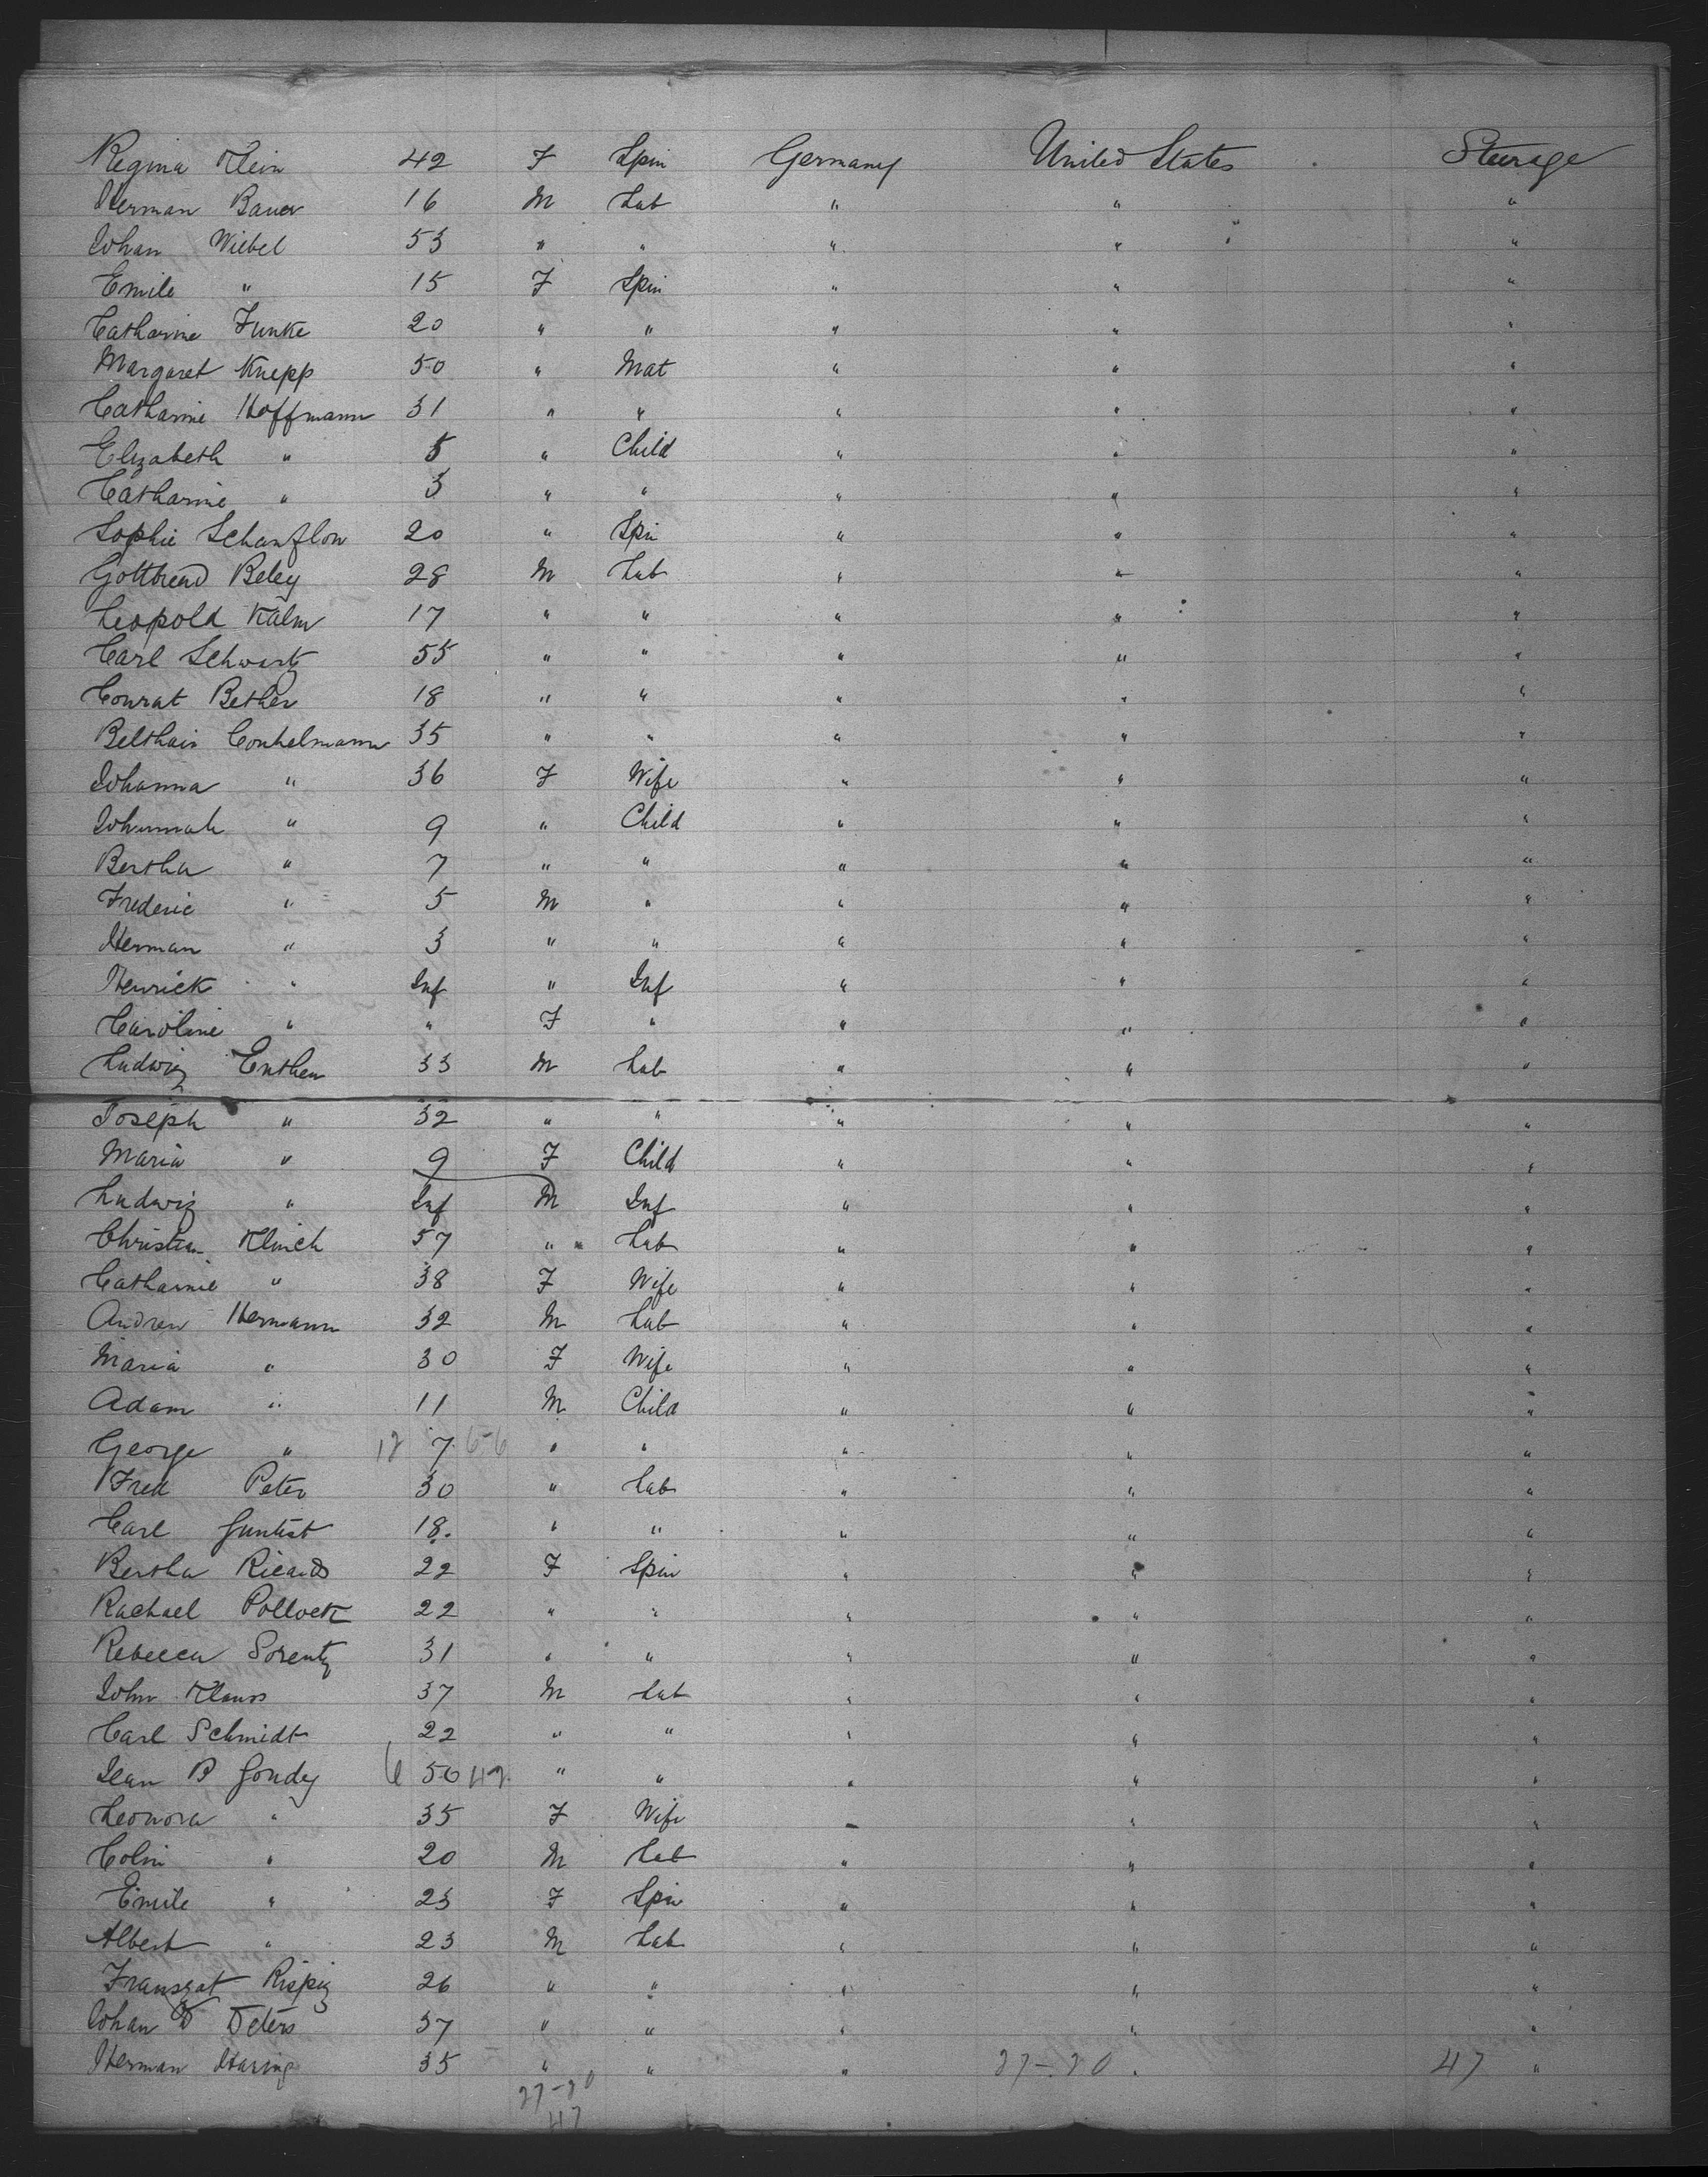 Regina Klein 42 F Spin Germany United States Steerage
Herman Bauer 16 M Lab " " "
Johan Wiebel 53 " " " " "
Emile " 15 F Spin " " "
Catharine Funke 20 " " " " "
Margaret Knepp 50 " Mat " " "
Catharine Hoffmann 31 " " " " "
Elizabeth " 5 " Child " " "
Catharine " 3 " " " " "
Sophie Schanflon 20 " Spin " " "
Gottbread Beley 28 M Lab " " "
Leopold Kalm 17 " " " " "
Carl Schwartz 55 " " " " "
Conrat Bether 18 " " " " "
Belthais Conhelmann 35 " " " " "
Johanna " 36 F Wife " " "
Johannah " 9 " Child " " "
Bertha " 7 " " " " "
Frederic " 5 M " " " "
Herman " 3 " " " " "
Henrick " Inf " Inf " " "
Caroline " " F " " " "
Ludwig Enthen 33 M Lab " " "
Joseph " 32 " " " " "
Maria " 9 F Child " " "
Ludwig " Inf M Inf " " "
Christian Klinch 57 " Lab " " "
Catharine " 38 F Wife " " "
Andrew Hermann 32 M Lab " " "
Maria " 30 F Wife " " "
Adam " 11 M Child " " "
George " 12 7 6-6 " " " " "
Fred Peter 30 " Lab " " "
Carl Guntest 18 " " " " "
Bertha Ricards 22 F Spin " " "
Rachael Pollock 22 " " " " "
Rebecca Sorentz 31 " " " " "
John Klauss 37 M Lab " " "
Carl Schmidt 22 " " " " "
Jean B Goudy 6 50 42 " " " " "
Leonora " 35 F Wife " " "
Colin " 20 M Lab " " "
Emile " 23 F Spin " " "
Albert " 23 M Lab " " "
Franszat Rispig 26 " " " " "
Johan D Deters 37 " " " " "
Herman Haring 35 " " " 27-20 " 47 "
27-20
47